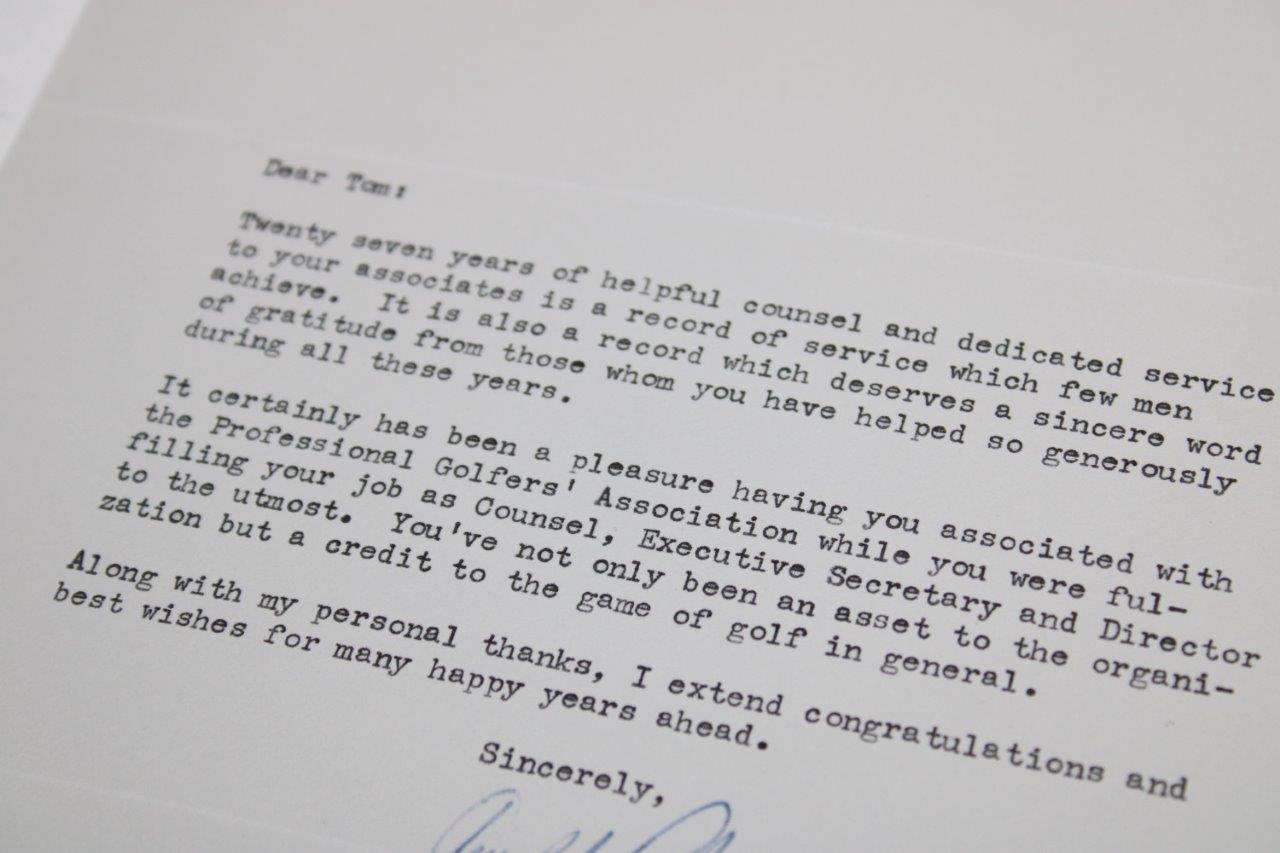 Dear Tom:
Twenty seven years of helpful counsel and dedicated service
to your associates is a record of service which few men
achieve. It is also a record which deserves a sincere word
of gratitude from those whom you have helped so generously
during all these years.
It certainly has been a pleasure having you associated with
the Professional Golfers' Association while you were ful-
filling your job as Counsel, Executive Secretary and Director
to the utmost. You've not only been an asset to the organi-
zation but a credit to the game of golf in general.
Along with my personal thanks, I extend congratulations and
best wishes for many happy years ahead.
Sincerely,